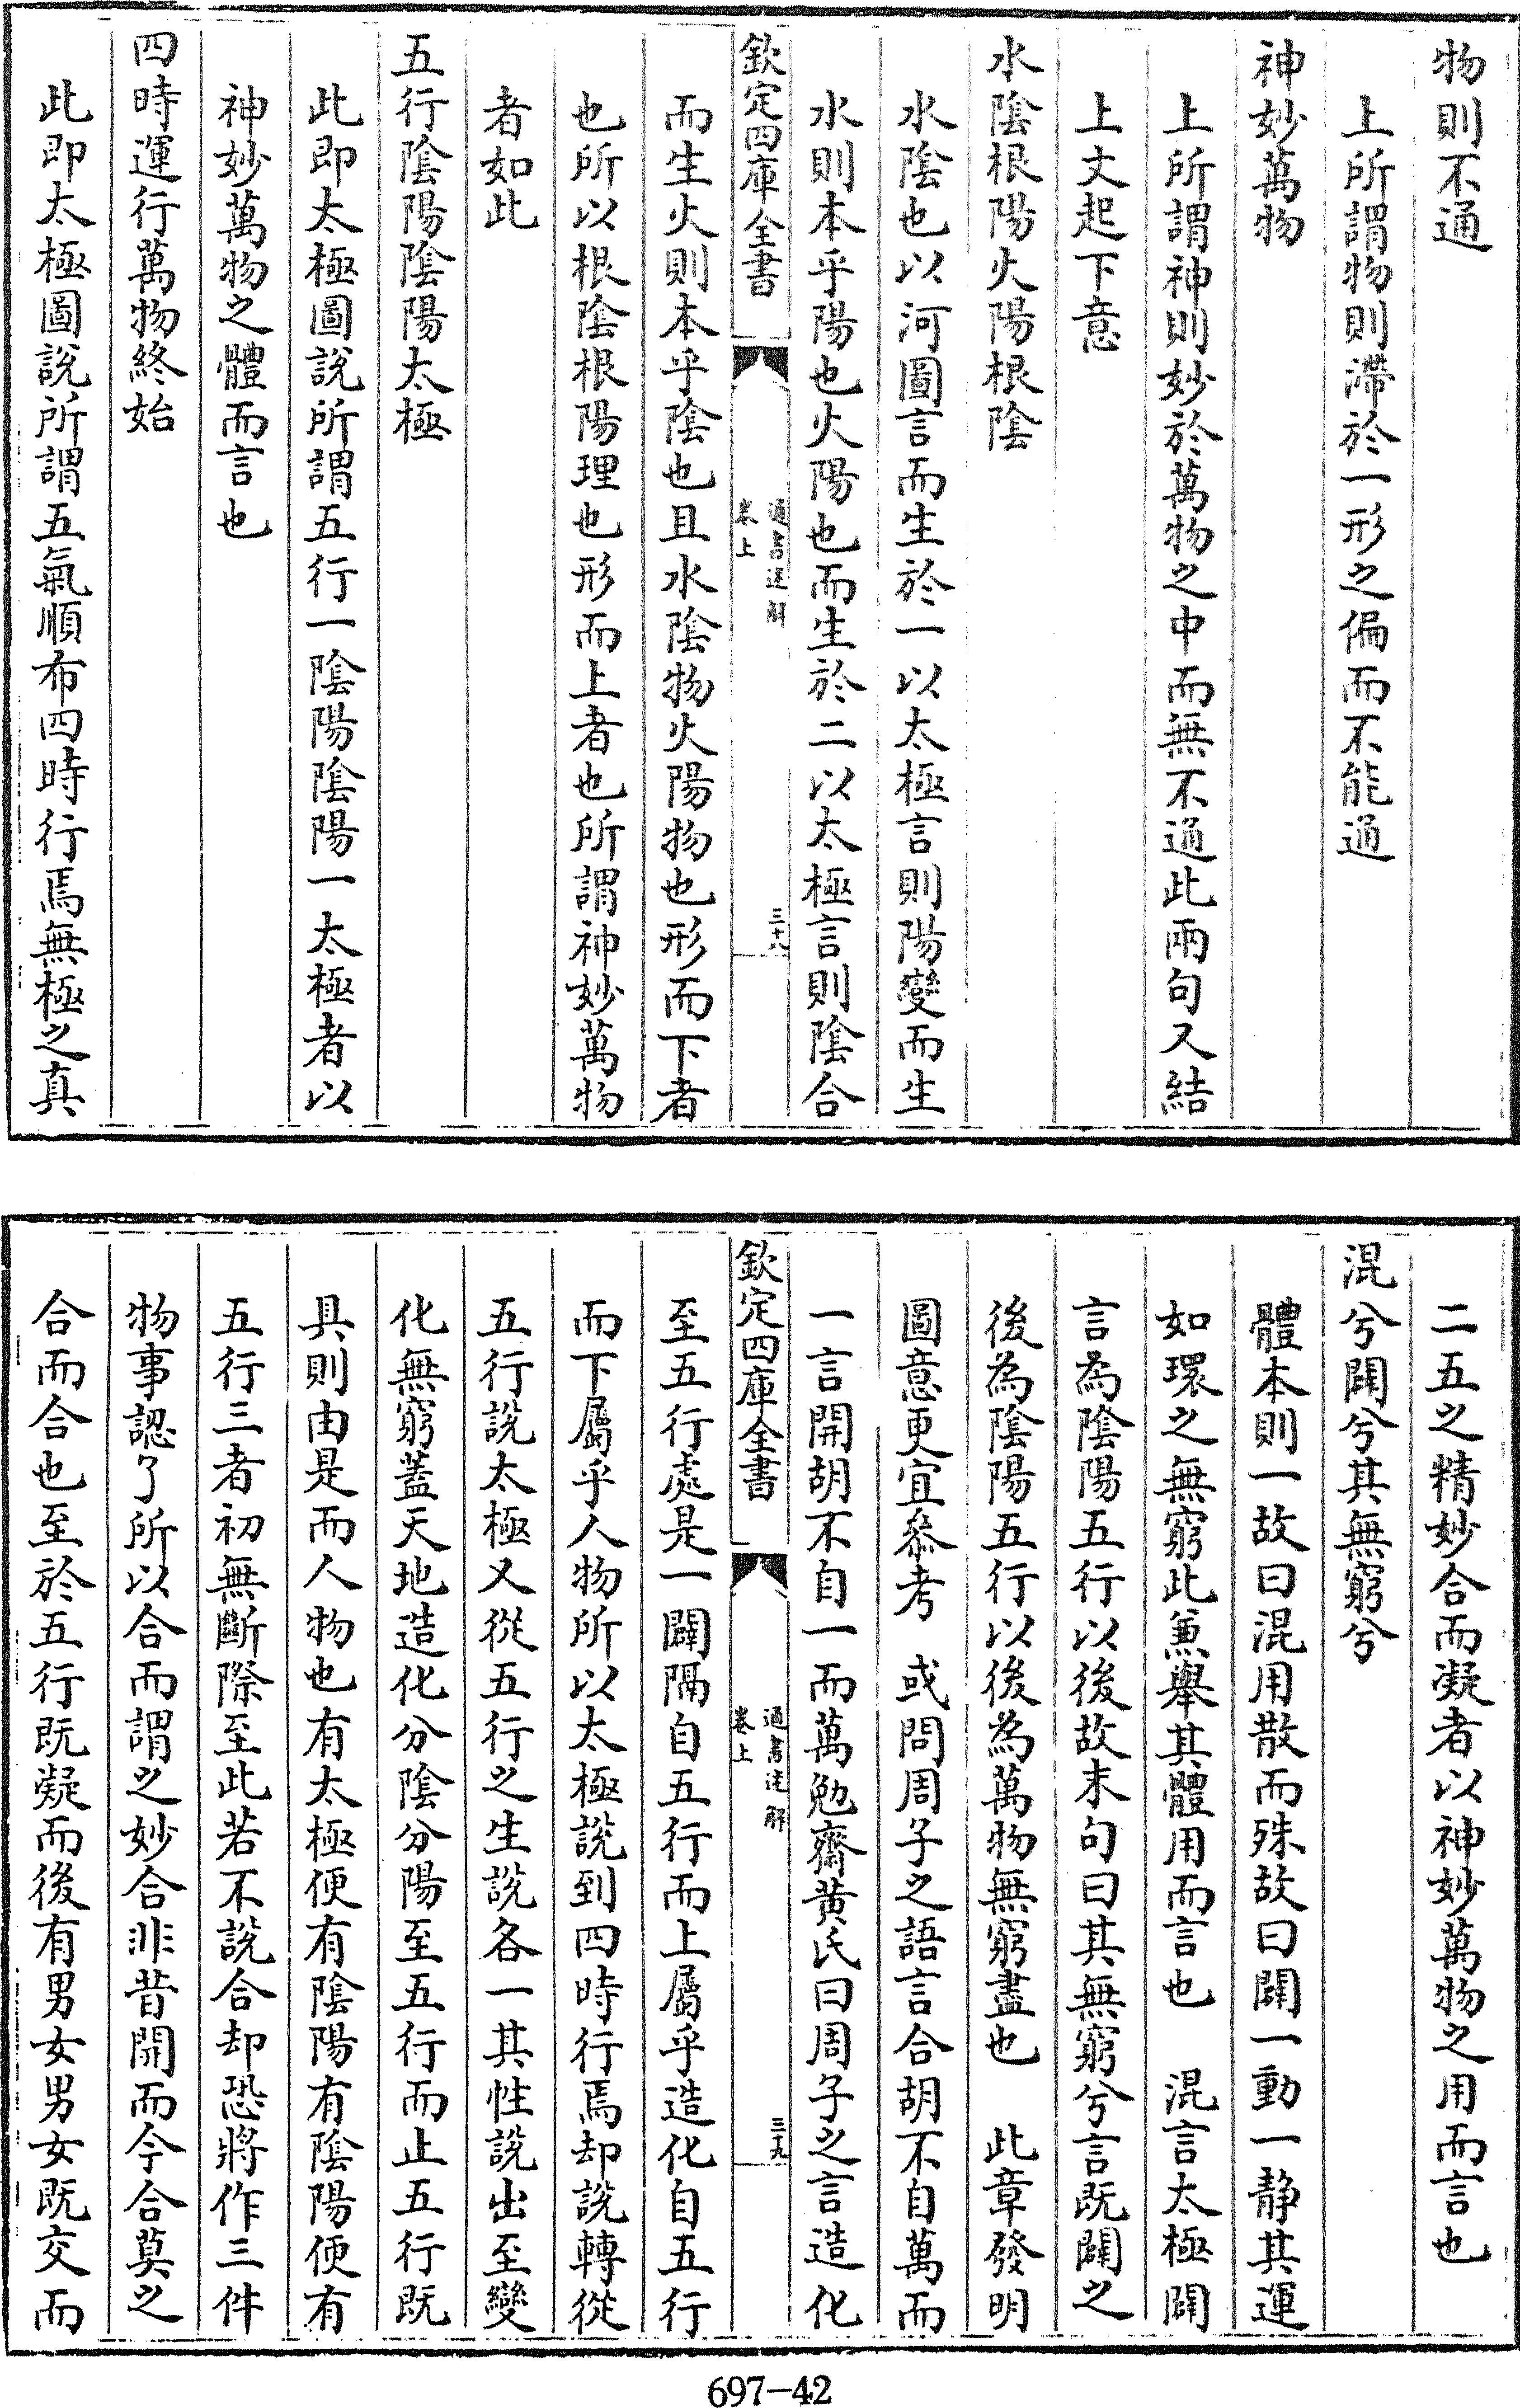 物則不通
上所謂物則滯於一形之偏而不能通
神妙萬物
上所謂神則妙於萬物之中而無不通此兩句又結
上文起下意
水陰根陽火陽根陰
水陰也以河圖言而生於一以太極言則陽變而生
水則本乎陽也火陽也而生於二以太極言則陰合
欽定四庫全書
通書述解
卷上
三十八
而生火則本乎陰也且水陰物火陽物也形而下者
也所以根陰根陽理也形而上者也所謂神妙萬物
者如此
五行陰陽陰陽太極
此即太極圖說所謂五行一陰陽陰陽一太極者以
神妙萬物之體而言也
四時運行萬物終始
此即太極圖說所謂五氣順布四時行焉無極之真
二五之精妙合而凝者以神妙萬物之用而言也
混兮闢兮其無窮兮
體本則一故曰混用散而殊故曰闢一動一靜其運
如環之無窮此兼舉其體用而言也 混言太極闢
言為陰陽五行以後故末句曰其無窮兮言既闢之
後為陰陽五行以後為萬物無窮盡也 此章發明
圖意更宜叅考 或問周子之語言合胡不自萬而
一言開胡不自一而萬勉齋黃氏曰周子之言造化
欽定四庫全書
通書述解
卷上
三十九
至五行處是一闢隔自五行而上屬乎造化自五行
而下屬乎人物所以太極說到四時行焉却說轉從
五行說太極又從五行之生說各一其性說出至變
化無窮蓋天地造化分陰分陽至五行而止五行既
具則由是而人物也有太極便有陰陽有陰陽便有
五行三者初無斷際至此若不說合却恐將作三件
物事認了所以合而謂之妙合非昔開而今合莫之
合而合也至於五行既凝而後有男女男女既交而
697-42